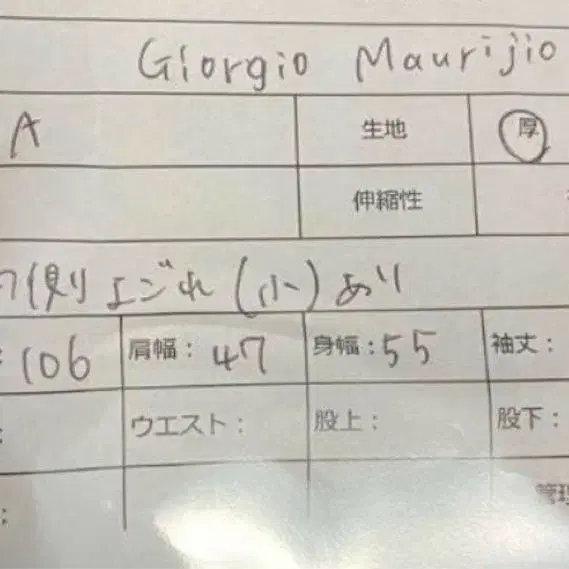 Giorgio Maurijio
A 生地 厚
伸縮性
側よごれ(小)あり
106 肩幅: 47 身幅: 55 袖丈:
: ウエスト: 股上: 股下:
: 管理